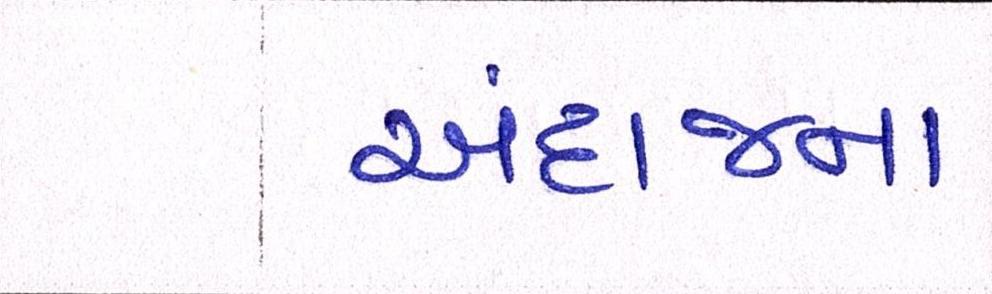 અંદાજના